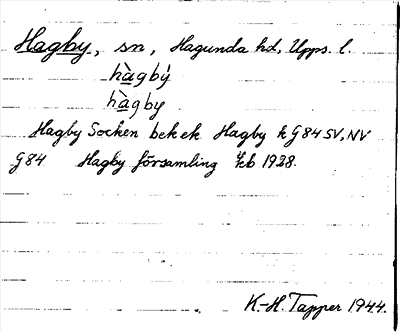 Hagby, sn, Hagunda hd, Upps. l.
hàgbý
hàgby
Hagby Socken bek ek Hagby k G84 SV, NV
G84 Hagby församling Jeb 1928.
K.-H. Tapper 1944.